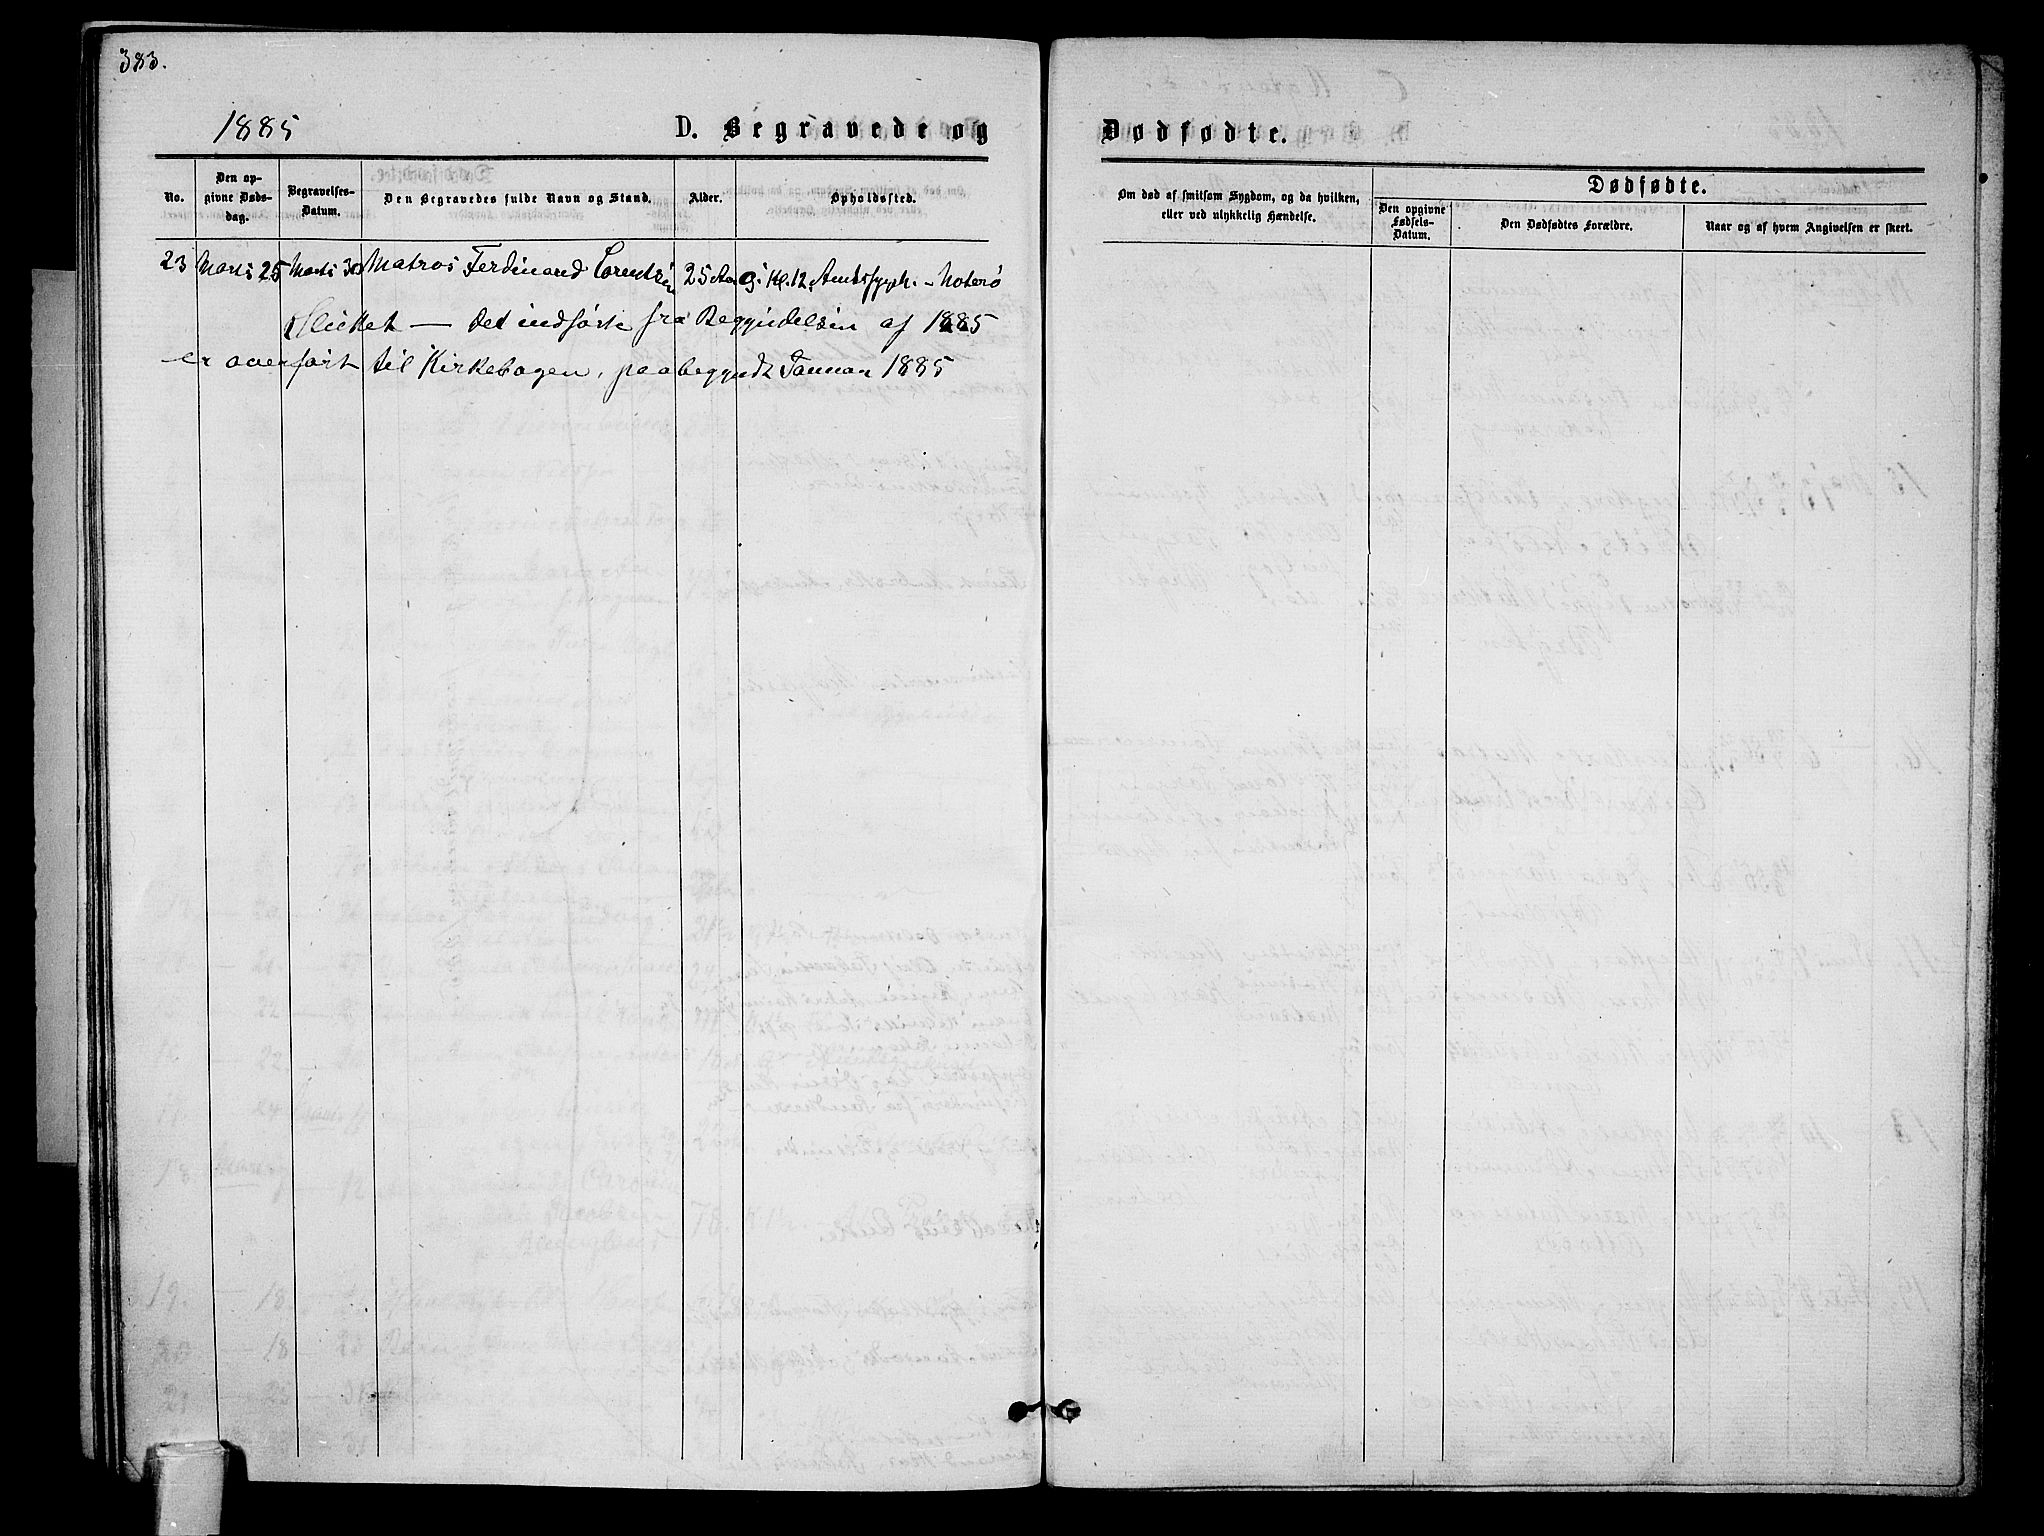 383.
1885
D. Begravede og
Dødfødte.
No.
Den op-
givne Døds-
dag.
Begravelses-
Datum.
Den Begravedes fulde Navn og Stand.
Alder.
Opholdssted.
Om død af smitsom Sygdom, og da hvilken,
eller ved ulykkelig Hændelse.
Dødfødte.
Den opgivne
Fødsels-
Datum.
Den Dødfødtes Forældre.
Naar og af hvem Angivelsen er skeet.
23 Marts 25 Marts 30 Matros Ferdinand Lorentsen 25 Aar Kl. 12, Amtssygeh. - Noterø
Sluttet — Det indførte fra Begyndelsen af 1885
er overført til Kirkebogen, paabegyndt Januar 1885